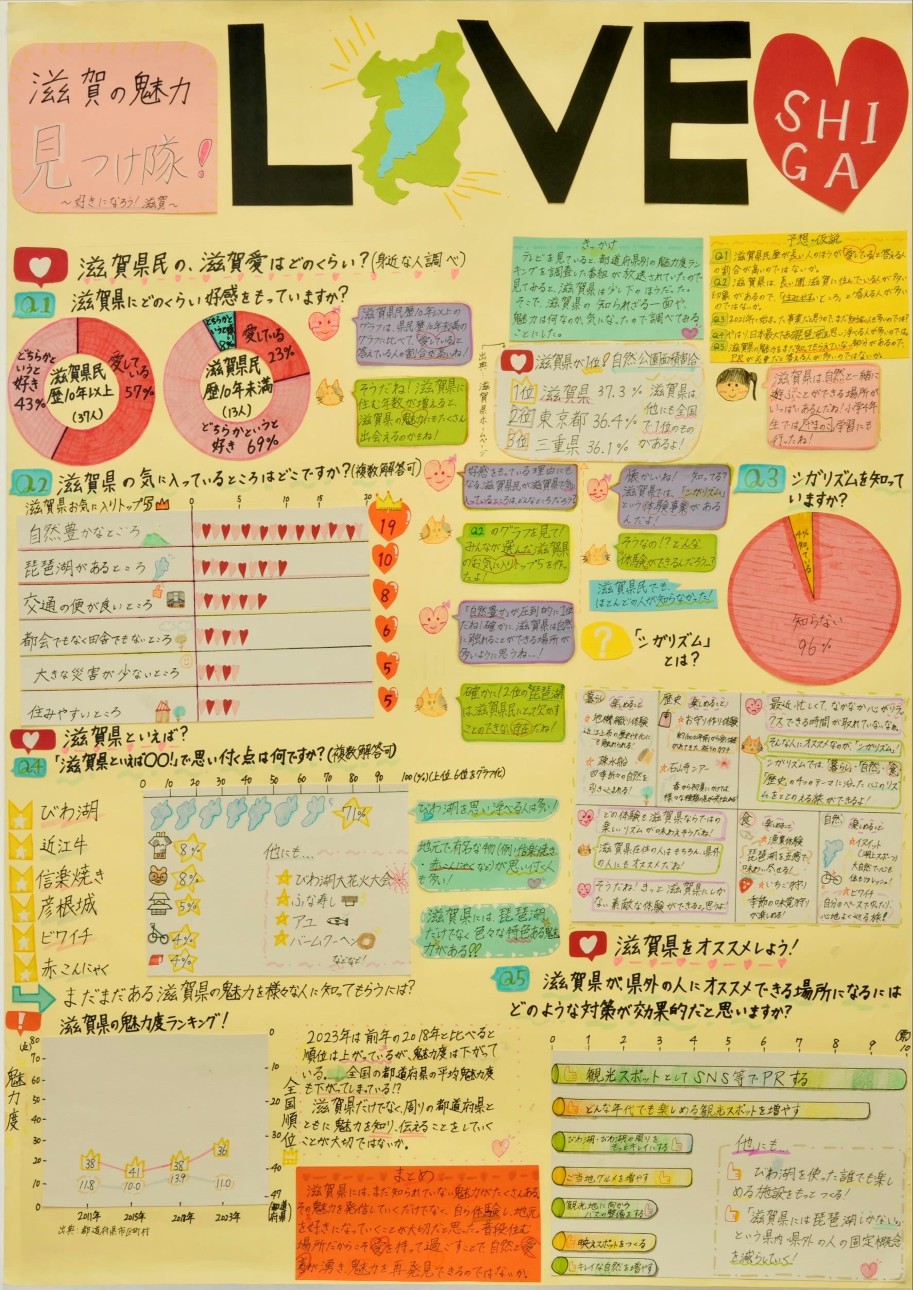 滋賀の魅力
見つけ隊!
～好きになろう!滋賀～
L VE
SHI
GA
滋賀県民の、滋賀愛はどのくらい?(身近な人調べ)
Q1 滋賀県にどのくらい好感をもっていますか?
どちらかというと好き 43%
滋賀県民歴10年以上(37人)
愛している 57%
どちらかというと嫌い 8%
滋賀県民歴10年未満(13人)
愛している 23%
どちらかというと好き 69%
滋賀県民歴10年以上の
グラフは、県民歴10年未満の
グラフに比べて、「愛している」と
答えている人の割合が高いね!
そうだね!滋賀県に
住む年数が増えると、
滋賀県の魅力にもたくさん
出会えるのかもね!
きっかけ
テレビを見ていると、都道府県別の魅力度ラン
キングを調査した番組が放送されていたので、
見てみると、滋賀県は少し下のほうだった。
そこで、滋賀県の知られざる一面や、
魅力は何なのか、気になったので調べてみる
ことにした。
予想・仮説
出典:滋賀県ホームページ
滋賀県が1位!自然公園面積割合
1位 滋賀県 37.3%
2位 東京都 36.4%
3位 三重県 36.1%
滋賀県は
他にも全国
で1位のもの
があるよ!
滋賀県は自然と一緒に
遊ぶことができる場所が
いっぱいあるんだね!小学4年
生では「やまのこ」学習にも
行ったね!
Q2 滋賀県の気に入っているところはどこですか?(複数解答可)
滋賀県お気に入りトップ5
0 5 10 15 20
自然豊かなところ 19
琵琶湖があるところ 10
交通の便が良いところ 8
都会でもなく田舎でもないところ 6
大きな災害が少ないところ 5
住みやすいところ 5
Q2のグラフを見て!
みんなが選んだ滋賀県
のお気に入りトップ5を作っ
たよ!
「自然豊か」が圧倒的に1位
だね!確かに、滋賀県は自然
に触れることができる場所が
多いように思うね…!
確かに!2位の琵琶湖
は、滋賀県民にとって欠かす
ことのできない存在だね!
懐かしいね! 知ってる?
滋賀県では、「シガリズム」
という体験事業がある
んだよ!
そうなの!?どんな
体験ができるんだろう…?
滋賀県民でも、
ほとんどの人が知らなかった!
? 「シガリズム」
とは?
Q3 シガリズムを知って
いますか?
4% 知っている
知らない
96%
暮らし 楽しめること
歴史 楽しめること
お守り作り体験
石山寺ツアー
食 楽しめること
漁業体験
琵琶湖を五感で
味わい尽せる!
いちご狩り
季節の味覚狩り
が楽しめる!
自然 楽しめること
ビワイチ
自分のペースで走れたり、
心地よく巡る旅!
最近忙しくて、なかなか心がリラッ
クスできる時間が取れていないなぁ。
そんな人にオススメなのが、「シガリズム」!
シガリズムでは、「暮らし・自然・食・
歴史」の4つのテーマに沿った心のリズ
ムをととのえる旅ができるよ!
どの体験も滋賀県ならではの
楽しいリズムが味わえそうだね!
滋賀県在住の人はもちろん、県外
の人にもオススメだね!
そうだね!きっと滋賀県にしか
ない素敵な体験ができると思うよ!
滋賀県といえば?
Q4 「滋賀県といえば○○!」で思い付く点は何ですか?(複数解答可)
0 10 20 30 40 50 60 70 80 90 100(%)(上位6位をグラフ化)
びわ湖 71%
近江牛 8%
信楽焼き 8%
彦根城 5%
ビワイチ 4%
赤こんにゃく 4%
他にも…
びわ湖大花火大会
ふな寿し
アユ
バームクーヘン
などなど!
びわ湖を思い浮べる人は多い!
地元で有名な物(例:信楽焼き
・赤こんにゃくなど)が思い付く人
も多い!
滋賀県には、琵琶湖
だけでなく色々な特色ある魅
力がある!!
まだまだある滋賀県の魅力を様々な人に知ってもらうには?
滋賀県の魅力度ランキング!
(点) 80 70 60 50 40 30 20 10 0
魅力度
0 10 20 30 40 47(都道府県)
全国順位
38 41 38 36
11.8 10.0 13.9 11.0
2011年 2015年 2018年 2023年
出典:都道府県市区町村
2023年は前年の2018年と比べると
順位は上がっているが、魅力度は下がって
いる。→全国の都道府県の平均魅力度
も下がってしまっている!?
滋賀県だけでなく、周りの都道府県と
ともに魅力を知り、伝えることをしていく
ことが大切ではないか。
まとめ
滋賀県には、まだ知られていない魅力がたくさんある。
その魅力を発信していくだけでなく、自ら体験し、地元
を好きになっていくことが大切だと思った。普段住む
場所だからこそ愛を持って過ごすことで自然と愛
が湧き、魅力を再発見できるのではないか。
滋賀県をオススメしよう!
Q5 滋賀県が県外の人にオススメできる場所になるには
どのような対策が効果的だと思いますか?
0 1 2 3 4 5 6 7 8 9 10
観光スポットとしてSNS等でPRする
どんな年代でも楽しめる観光スポットを増やす
びわ湖・びわ湖の周りを
もっとキレイにする
ご当地グルメを増やす
観光地に向かう
バスの整備をする
映えスポットをつくる
キレイな自然を増やす
他にも…
びわ湖を使った誰でも楽し
める施設をもっとつくる!
「滋賀県には琵琶湖しかない」
という県内・県外の人の固定概念
を減らしていく!